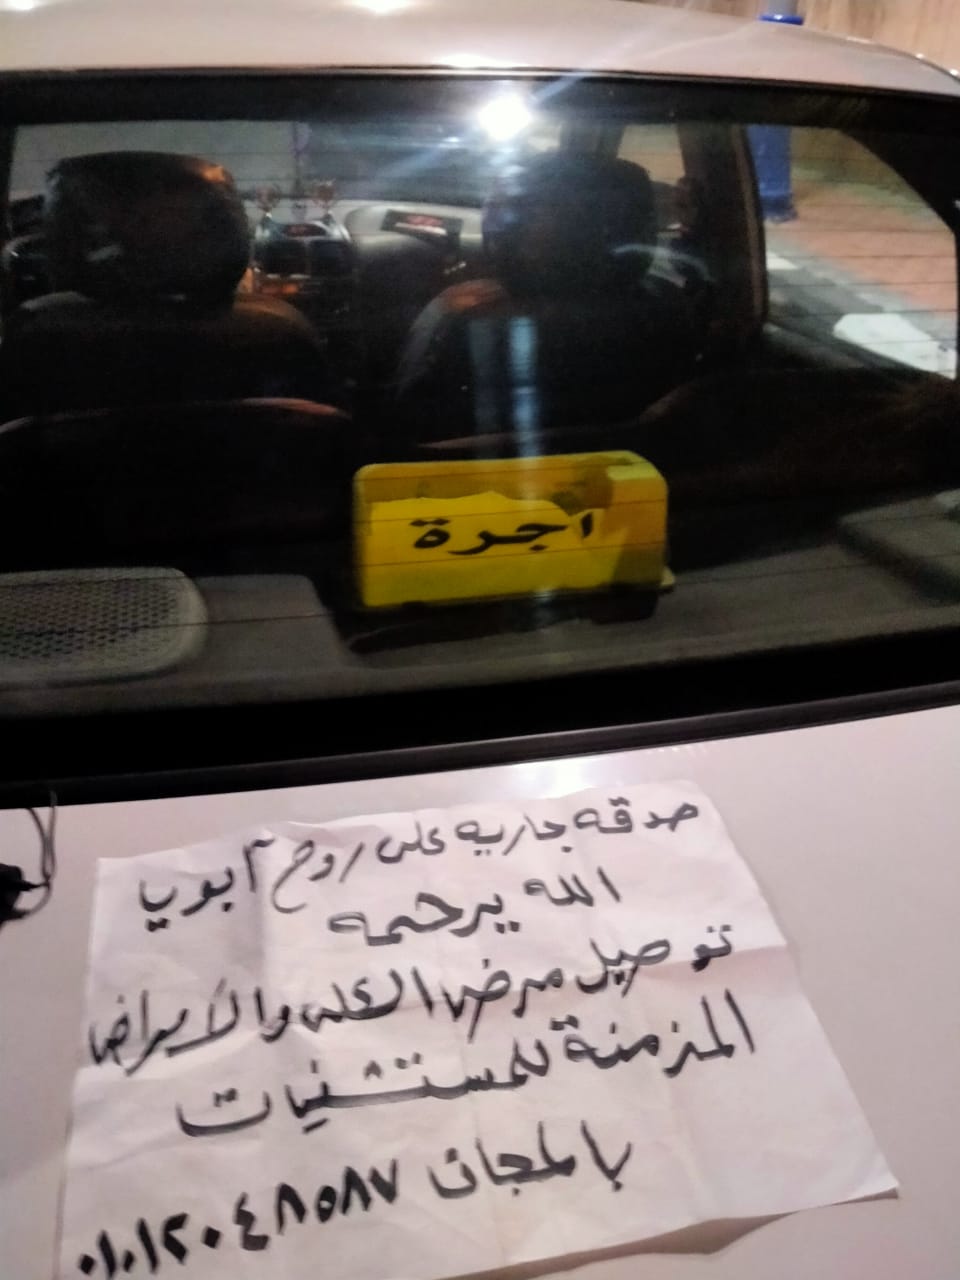 اجرة
صدقه جاريه على روح ابويا
الله يرحمه
توصيل مرضى الكلى والأمراض
المزمنة للمستشفيات
بالمجان ٠١٠١٢٠٤٨٥٨٧